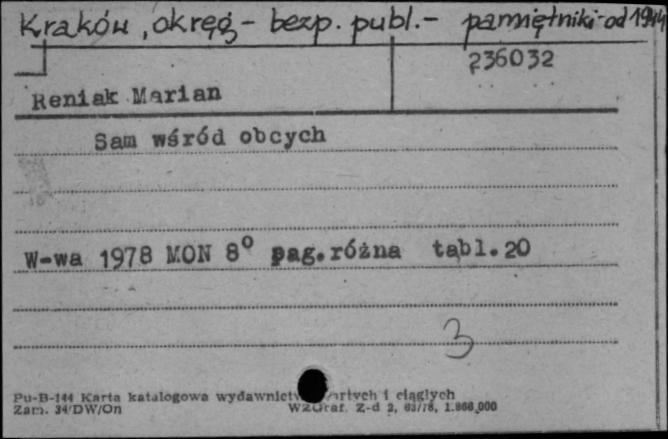 Kraków, okręg - bezp. publ. - pamiętniki - od 1944
236032
Reniak Marian
Sam wśród obcych
W-wa 1978 MON 8° pag. różna tabl. 20
3
Pu-B-144 Karta katalogowa wydawnictw i ciągłych
Zam. 34/DW/On WZGraf. Z-d 2, 63/78, 1.866.000